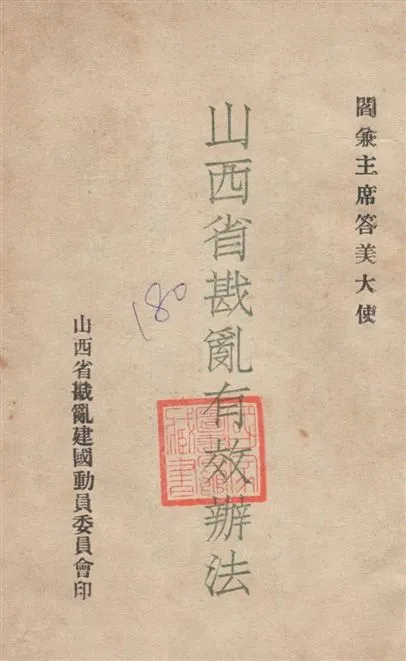 閻兼主席答美大使
山西省戡亂有效辦法
180
山西省戡亂建國動員委員會印